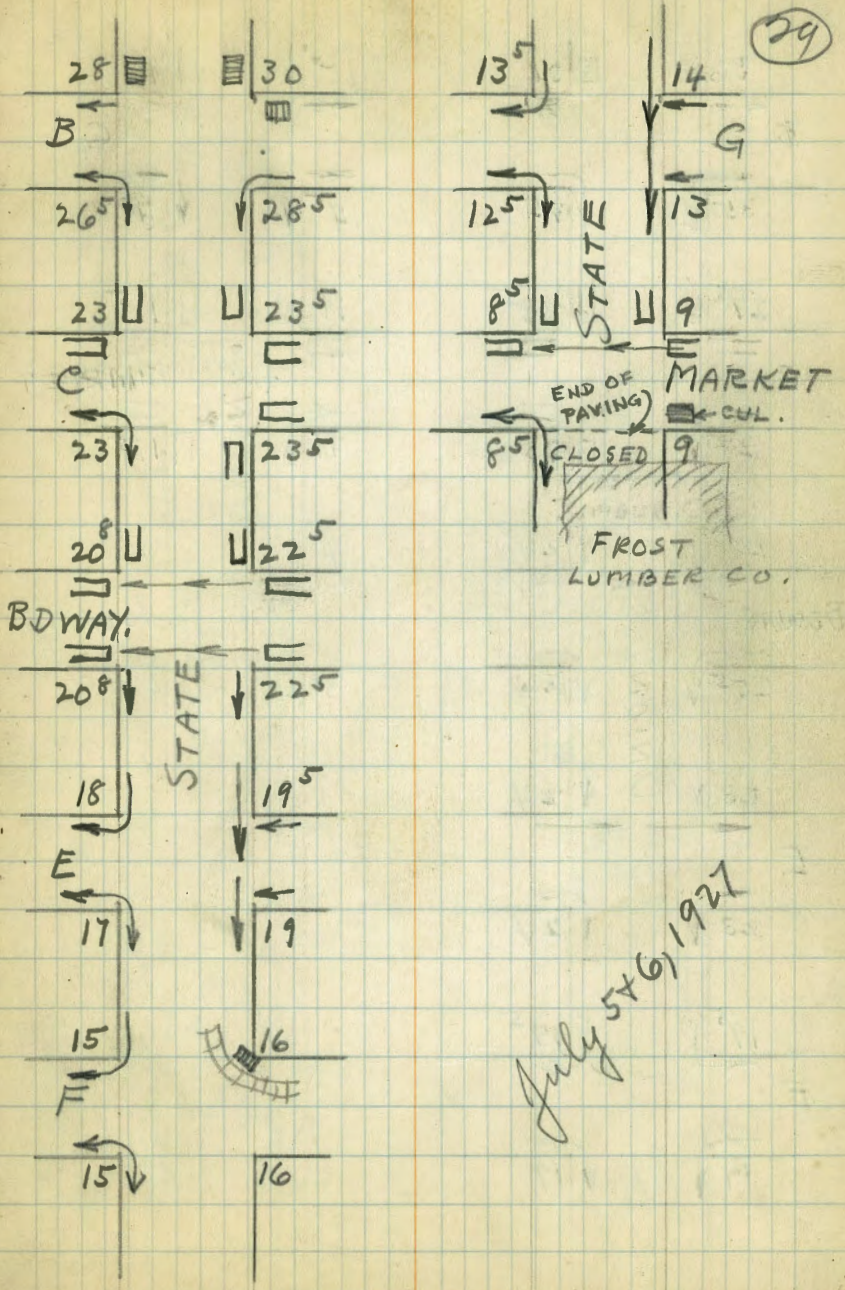 29
28 30
B
26⁵ 28⁵
23 23⁵
C
23 23⁵
20⁸ 22⁵
BDWAY.
20⁸ 22⁵
STATE
18 19⁵
E
17 19
15 16
F
15 16
13⁵ 14
G
12⁵ 13
STATE
8⁵ 9
MARKET
END OF
PAVING
CUL.
8⁵ CLOSED 9
FROST
LUMBER CO.
July 5+6, 1927